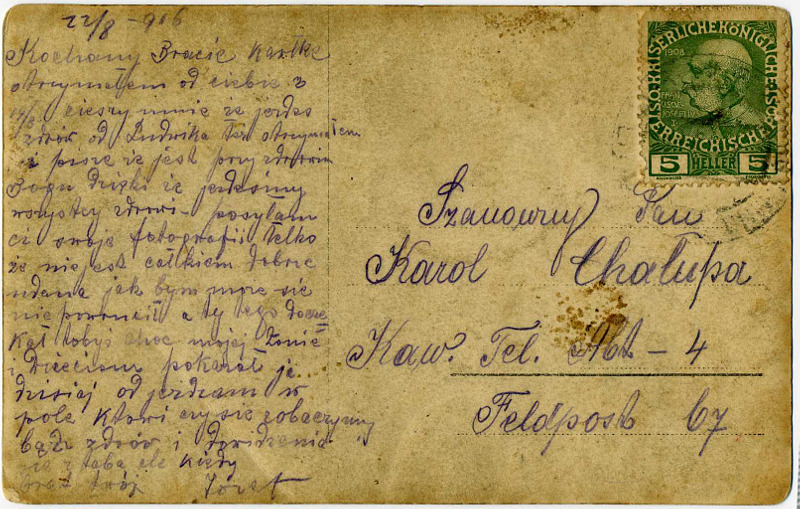 22/8 - 916
Kochany Bracie Kartkę
otrzymałem od ciebie z
14/8 cieszy mnie że jezdeś
zdrów od Ludwika też otrzymałem
i pisze że jest przy zdrowiu
Bogu dzięki że jezdeśmy
wszyscy zdrowi - posyłam
ci swoje fotografii telko
że nie jest całkiem dobrze
udana jak bym może się
nie powrócił a ty tego docze
kał tobyś choc mojej żonie
i dzieciom pokazał je
dzisiaj odjezdzam w
pole kto wi czy sie zobaczymy
bądź zdrów i dowidzenia
z tobą ale kiedy
twój Józef
Szanowny Pan
Karol Chałupa
Kaw. Tel. Abt - 4
Feldpost 67
K.K. OESTERREICHISCHE POST
KAISERLICHE KÖNIGLICHE
1908
5 HELLER 5